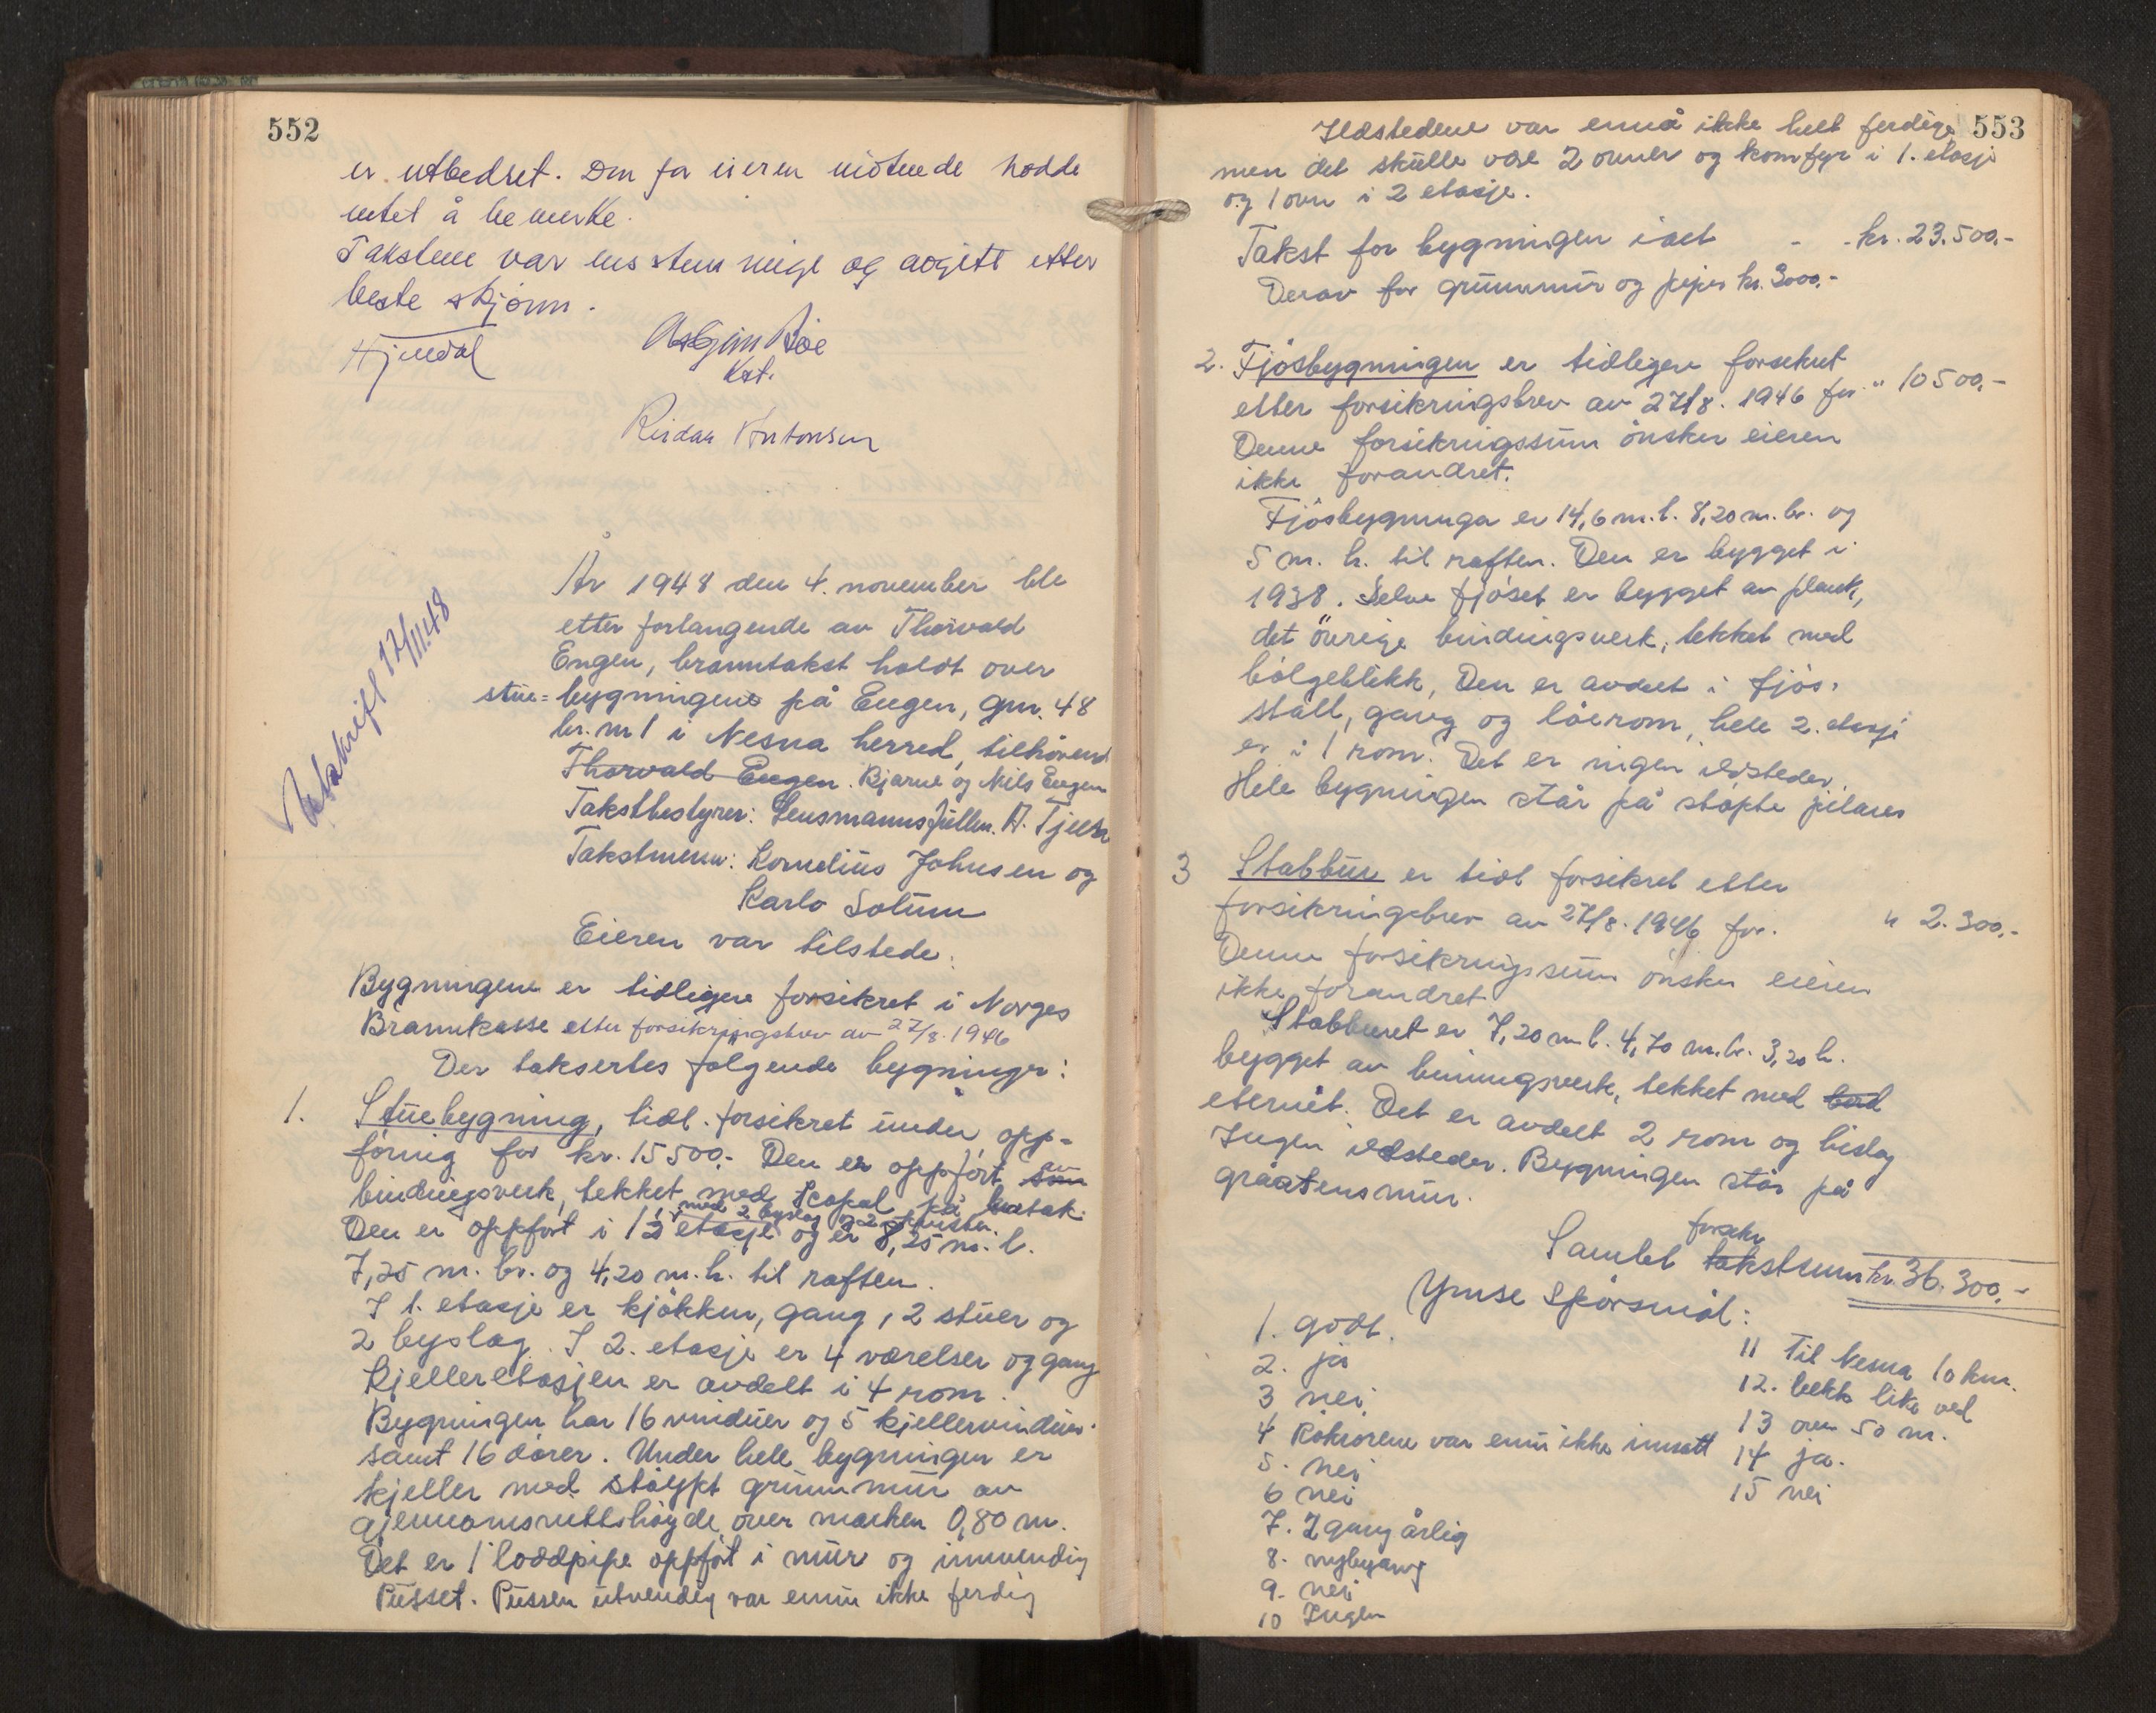 552
er utbedret. Den for eieren møtende hadde
intet å bemerke.
Takstene var enstemmige og avgitt etter
beste skjønn.
Hjuedal Asbjørn Bøe
kst.
Reidar Antonsen
Utskrift 12/11.48
År 1948 den 4. november ble
etter forlangende av Thorvald
Engen, branntakst holdt over
stue= bygningene på Engen, gnr. 48
br. nr 1 i Nesna herred, tilhørend
Thorvald Engen. Bjarne og Nils Engen
Takstbestyrer: Lensmannsfullm. A.
Takstmenn: Kornelius Johnsen og
Karlo Solum
Eieren var tilstede.
Bygningene er tidligere forsikret i Norges
Brannkasse etter forsikringsbrev av 27/8. 1946
Der taksertes følgende bygninger:
1. Stuebygning, tidl. forsikret under opp=
føring for kr. 15500,- Den er oppført av som
bindingsverk, tekket med på bartak.
med 2 byslag og 2
Den er oppført i 1½ etasje og er 8,25 m. l.
7,25 m. br. og 4,20 m. h. til raften.
I 1. etasje er kjøkken, gang, 2 stuer og
2 byslag. I 2. etasje er 4 værelser og gang
Kjelleretasjen er avdelt i 4 rom.
Bygningen har 16 vinduer og 5 kjellervinduer
samt 16 dører. Under hele bygningen er
kjeller med støypt grunnmur av
gjennomsnittshøyde over marken 0,80 m.
Det er 1 loddpipe oppført i mur og innvendig
Pusset. Pussen utvendig var ennu ikke ferdig
553
Ildstedene var ennå ikke helt ferdige
men det skulle være 2 ovner og komfyr i 1. etasje
og 1 ovn i 2 etasje.
Takst for bygningen i alt - - kr. 23.500,-
Derav for grunnmur og piper kr. 3000,-
2. Fjøsbygningen er tidligere forsekret
etter forsikringsbrev av 27/8. 1946 for " 10500,-
Denne forsikringssum ønsker eieren
ikke forandret.
Fjøsbygninga er 14,6 m. l. 8,20 m. br. og
5 m. h. til raften. Den er bygget i
1938. Selve fjøset er bygget av plank,
det øvrige bindingsverk, tekket med
bølgeblikk, Den er avdelt i fjøs,
stall, gang og låerom, hele 2. etasje
er i 1 rom. Det er ingen ildsteder,
Hele bygningen står på støpte pilarer
3 Stabbur er tidl forsikret etter
forsikringsbrev av 27/8. 1946 for. " 2.300,-
Denne forsikringssum ønsker eieren
ikke forandret
Stabburet er 7,20 m l. 4,70 m. br. 3,20 h.
bygget av biningsverk, tekket med bord
eternit. Det er avdelt 2 rom og bislag
Ingen ildsteder. Bygningen står på
gråstensmur.
forsekr
Samlet takstsum kr. 36.300,-
Ymse Spørsmål:
1. godt.
2. ja
3 nei
4 Rökrørene var ennu ikke innsatt
5. nei
6 nei
7. 2 gang årlig
8. nybygning
9. nei
10 Ingen
11 Til Nesna 10 km.
12. bekk like ved
13 over 50 m.
14 ja.
15 nei